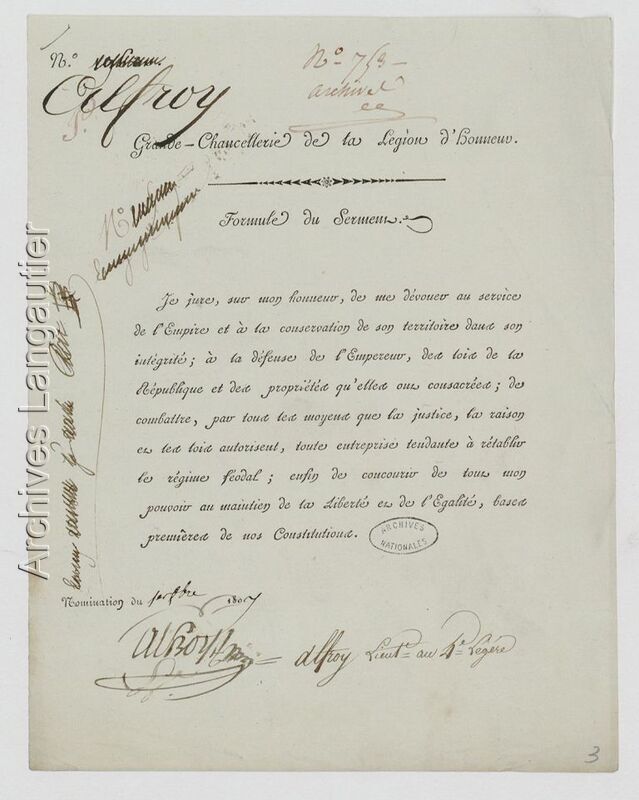 N.°
Alfroy
N.° 753
archives
Grande-Chancellerie de la Légion d'Honneur.
N.°
Formule du Serment.
Je jure, sur mon honneur, de me dévouer au service
de l'Empire et à la conservation de son territoire dans son
intégrité ; à la défense de l'Empereur, des lois de la
République et des propriétés qu'elles ont consacrées ; de
combattre, par tous les moyens que la justice, la raison
et les lois autorisent, toute entreprise tendante à rétablir
le régime féodal ; enfin de concourir de tout mon
pouvoir au maintien de la Liberté et de l'Egalité, bases
premières de nos Constitutions.
ARCHIVES
NATIONALES
Nomination du 1807
alfroy
alfroy Lieut.t au 4.e Légére
3
Archives Langautier